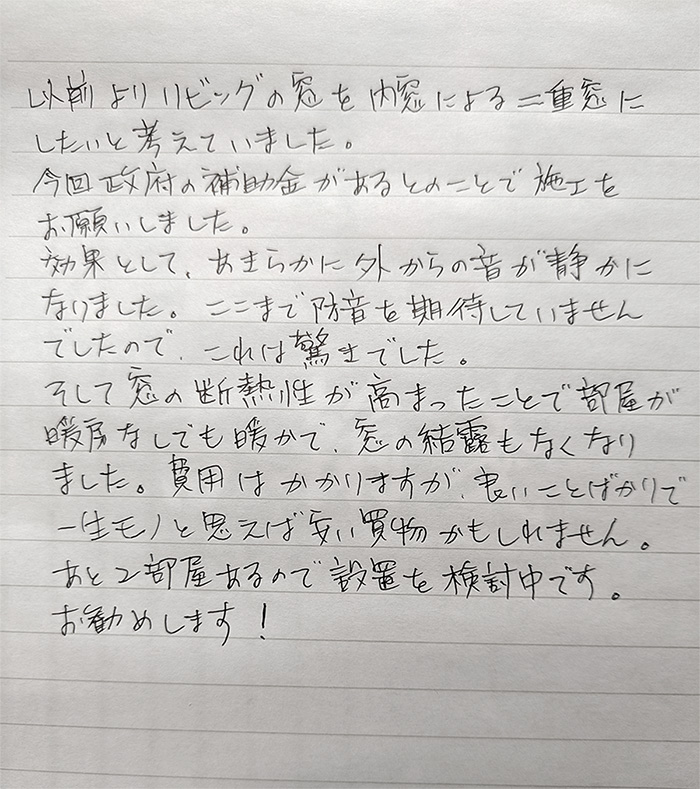 以前よりリビングの窓を内窓による二重窓に
したいと考えていました。
今回政府の補助金があるとのことで施工を
お願いしました。
効果として、あきらかに外からの音が静かに
なりました。ここまで防音を期待していません
でしたので、これは驚きでした。
そして窓の断熱性が高まったことで部屋が
暖房なしでも暖かで、窓の結露もなくなり
ました。費用はかかりますが、良いことばかりで
一生モノと思えば安い買物かもしれません。
あと2部屋あるので設置を検討中です。
お勧めします!